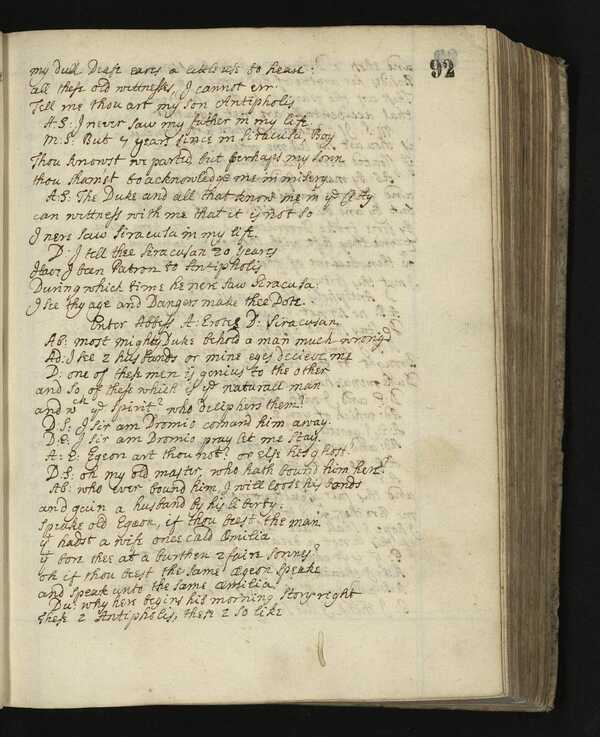 92
my dull Deafe eares a little use to heare:
all these old wittnesses, I cannot err.
Tell me thou art my son Antipholis
A:S: I never saw my father in my life
M:S: But 7 years since in Siracusa, Boy
Thou knowst we parted, but perhaps my sonn
thou shamst to acknowledge me in misery.
A:S: The Duke and all that know me in ye Citty
can wittness with me that it is not so
I nere saw Siracusa in my life.
D: I tell thee Siracusan 20 yeares
Have I been Patron to Antipholis
During which time he nere saw Siracusa
I see thy age and Dangers make thee Dote.
Enter Abbiss A: Erotes D: Siracusan
Ab: most mighty Duke behold a man much wrongd
Ad: I see 2 husbands or mine eyes decieve me
D: one of these men is genius to the other
and so of these which is ye naturall man
and wch ye spirit? who deciphers them?
D:S: I sir am Dromio comand him away.
D:E: I sir am Dromio pray let me stay.
A:E: Egeon art thou not? or else his ghost?
D:S: oh my old master, who hath bound him here?
Ab: who ever bound him, I will loose his bonds
and gain a husband by his liberty:
Speake old Egeon, if thou beest the man
yt hadst a wife once cald Æmilia
yt bore thee at a burthen 2 faire sonnes?
oh if thou beest the same Ægeon speake
and speak unto the same Æmilia?
Du: why here begins his morning story right
these 2 Antipholis, these 2 so like